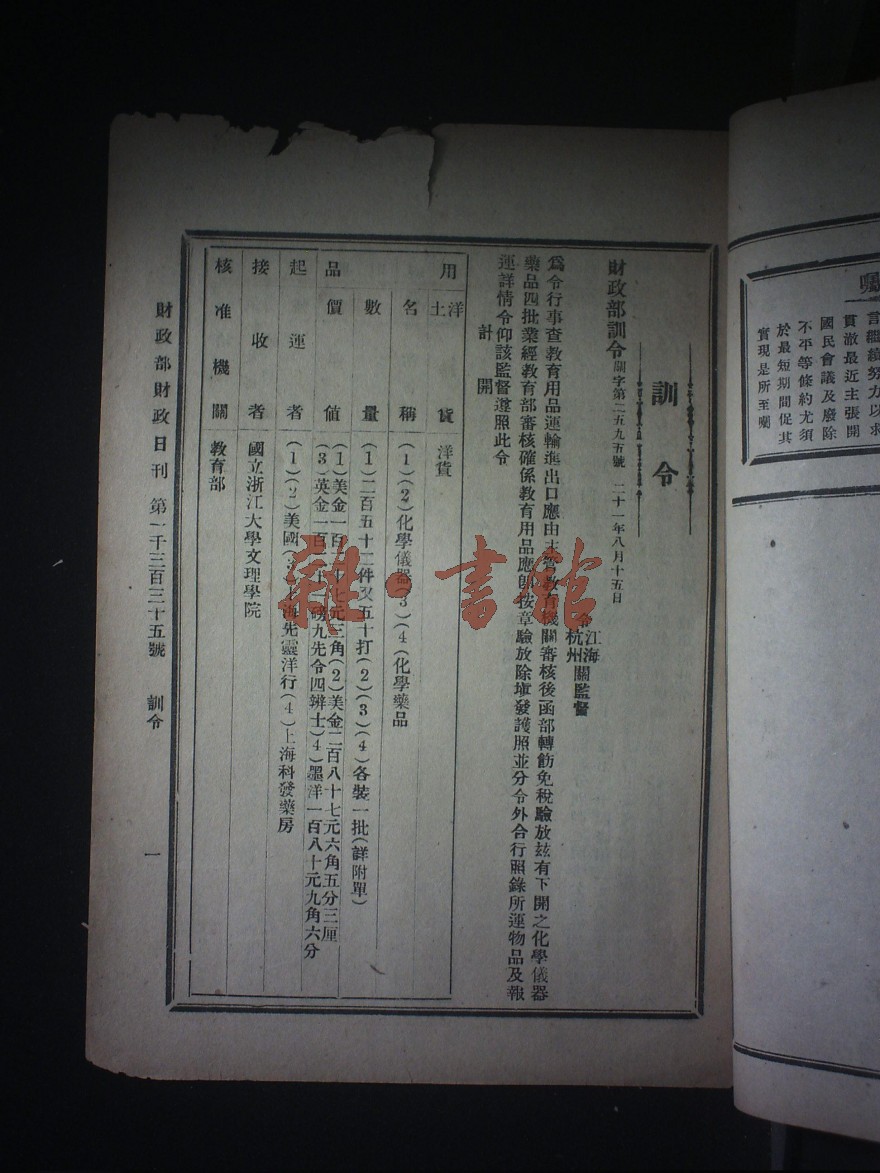 囑
言繼續努力以求
貫澈最近主張開
國民會議及廢除
不平等條約尤須
於最短期間促其
實現是所至囑
訓令
財政部訓令 關字第二五九五號 二十一年八月十五日
令江海
杭州關監督
爲令行事查教育用品運輸進出口應由主管教育機關審核後函部轉飭免稅驗放茲有下開之化學儀器
藥品四批業經教育部審核確係教育用品應卽按章驗放除塡發護照並分令外合行照錄所運物品及報
運詳情令仰該監督遵照此令
計開
用品
洋土貨 洋貨
名稱 (1)(2)化學儀器(3)(4)化學藥品
數量 (1)二百五十二件又五十打(2)(3)(4)各裝一批(詳附單)
價值 (1)美金一百二十七元三角(2)美金二百八十七元六角五分三厘
(3)英金一百 十 磅九先令四辨士(4)墨洋一百八十元九角六分
起運者 (1)(2)美國(3)上海先靈洋行(4)上海科發藥房
接收者 國立浙江大學文理學院
核准機關 教育部
財政部財政日刊 第一千三百三十五號 訓令 一
雜·書館